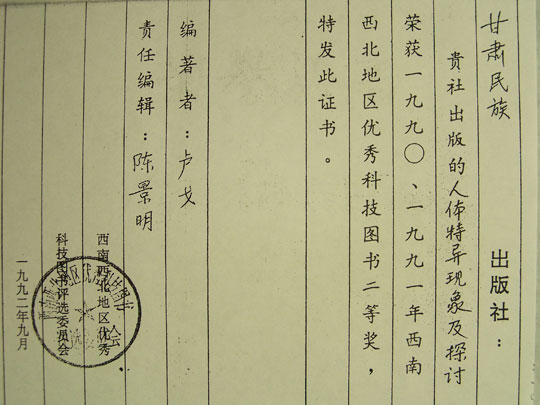 甘肃民族 出版社：
贵社出版的人体特异现象及探讨
荣获一九九〇、一九九一年西南
西北地区优秀科技图书二等奖，
特发此证书。
编著者：卢戈
责任编辑：陈景明
西南西北地区优秀
科技图书评选委员会
一九九二年九月